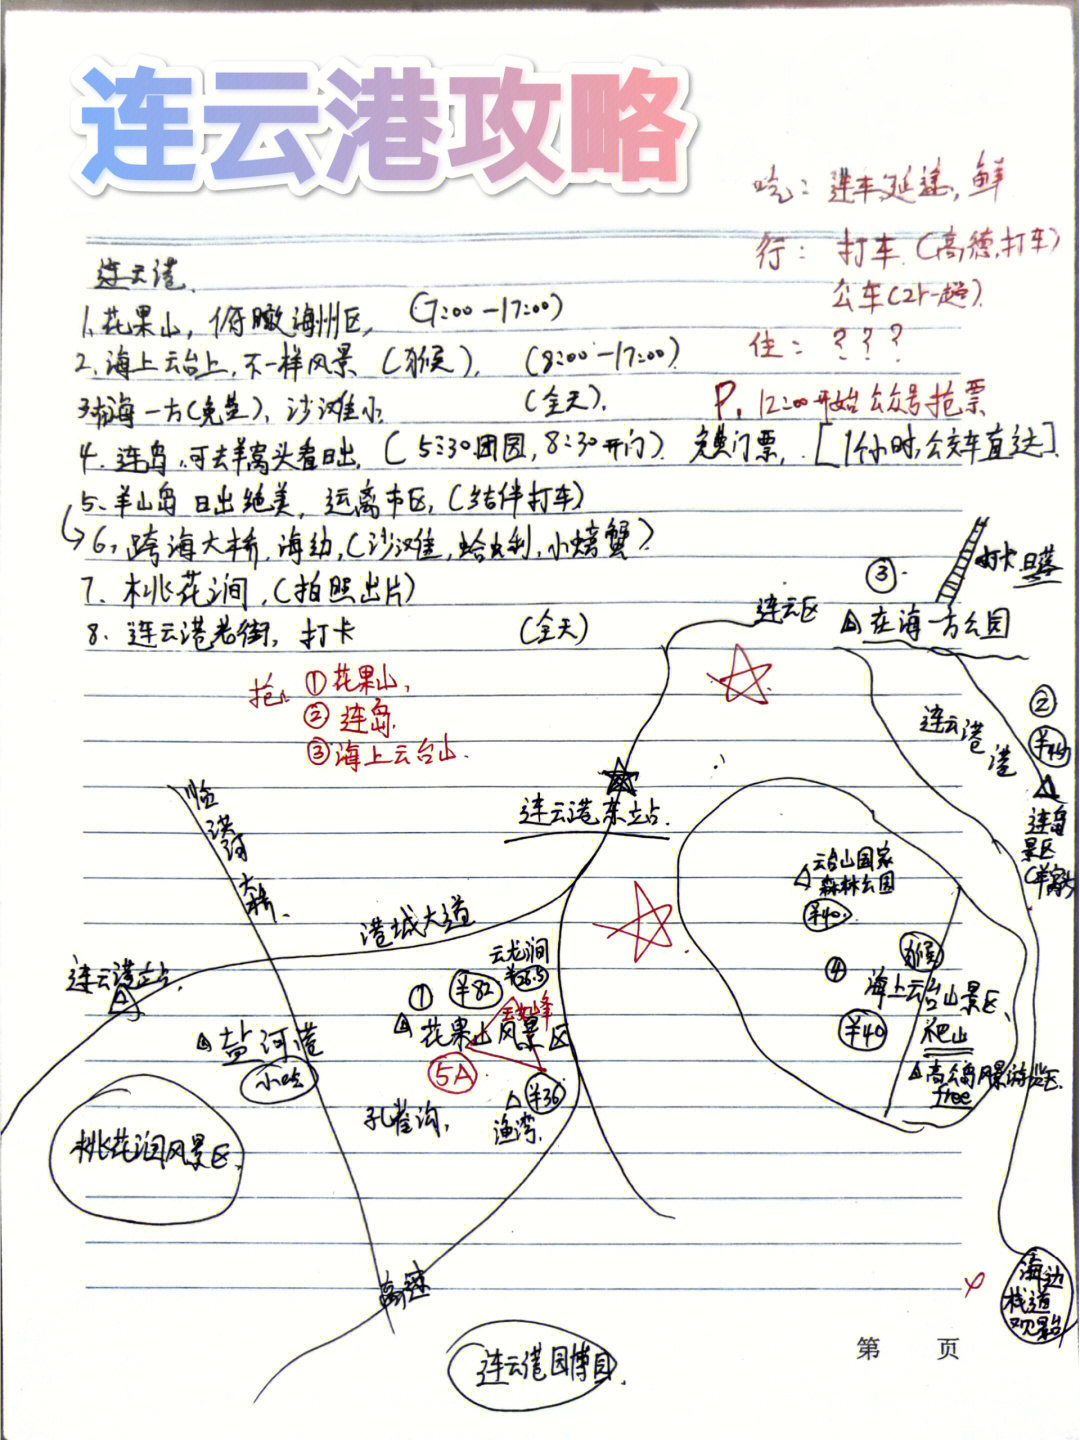 连云港攻略
行：打车（高德,打车）
住：？？？
连云港.
1.花果山，俯瞰海州区，（7:00-17:00）
2.海上云台上,不一样风景（猴），（8:00-17:00）
海一方（免费），沙滩小.（全天）.
P.12:00开始公众号抢票
4.连岛.可去羊窝头看日出,（5:30团园,8:30开门）免费门票,[1个小时,公交车直达]
5.羊山岛 日出绝美，远离市区,（结伴打车）
6,跨海大桥,（沙滩,蛤蜊,小螃蟹）
7.桃花涧,（拍照出片）
8.连云港老街，打卡（全天）
抢:①花果山,
②连岛.
③海上云台山.
③
打卡日落
连云区
在海一方公园
连云港港
②
连岛景区
连云港东站.
云台山国家森林公园
¥40
临洪河大桥.
港城大道
连云港站.
盐河巷
小吃
①
¥82
花果山风景区
5A
云龙涧
¥26.5
孔雀沟,
¥36
渔湾.
④
猴
海上云台山景区
¥40
爬山
高公岛风景游览区
free
桃花涧风景区.
高速
海边栈道观景台
连云港园博园.
第 页